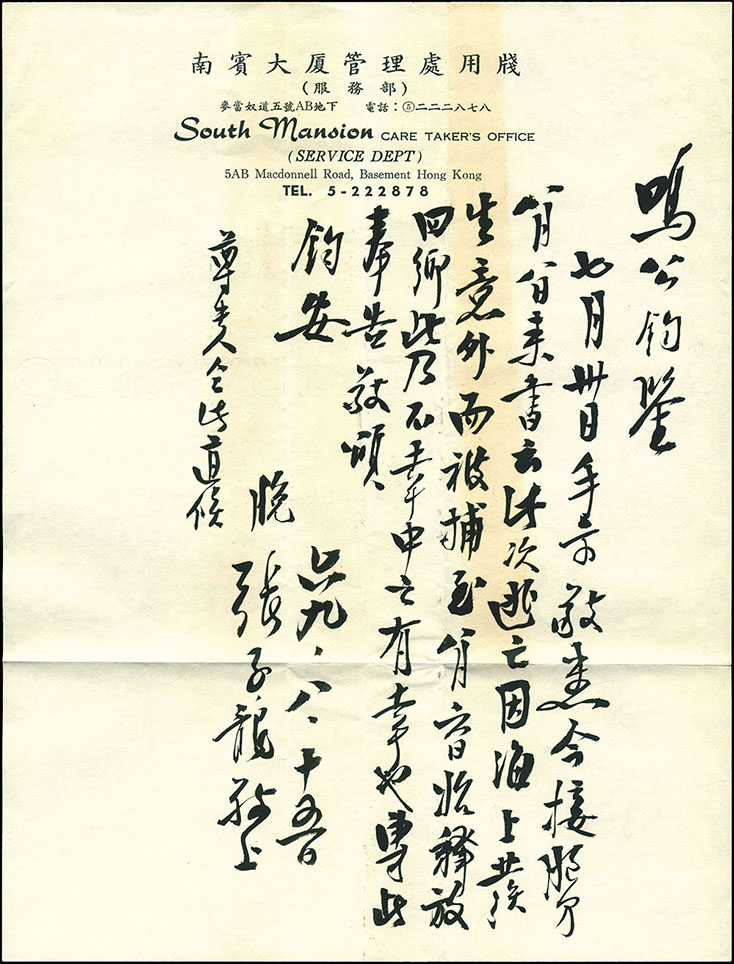 南賓大厦管理處用牋
(服務部)
麥當奴道五號AB地下 電話:⑤二二二八七八
South Mansion CARE TAKER'S OFFICE
(SERVICE DEPT)
5AB Macdonnell Road, Basement Hong Kong
TEL. 5-222878
鳴公鈞鑒
七月卅日手示敬悉今接勝
月 日來書云此次逃亡因海上發
生意外而被捕至八月 日始釋放
回鄉此乃不幸中之有幸也專此
奉告敬頌
鈞安
尊夫人仝此道候
晚
張子龍敬上
七九、八、十五日